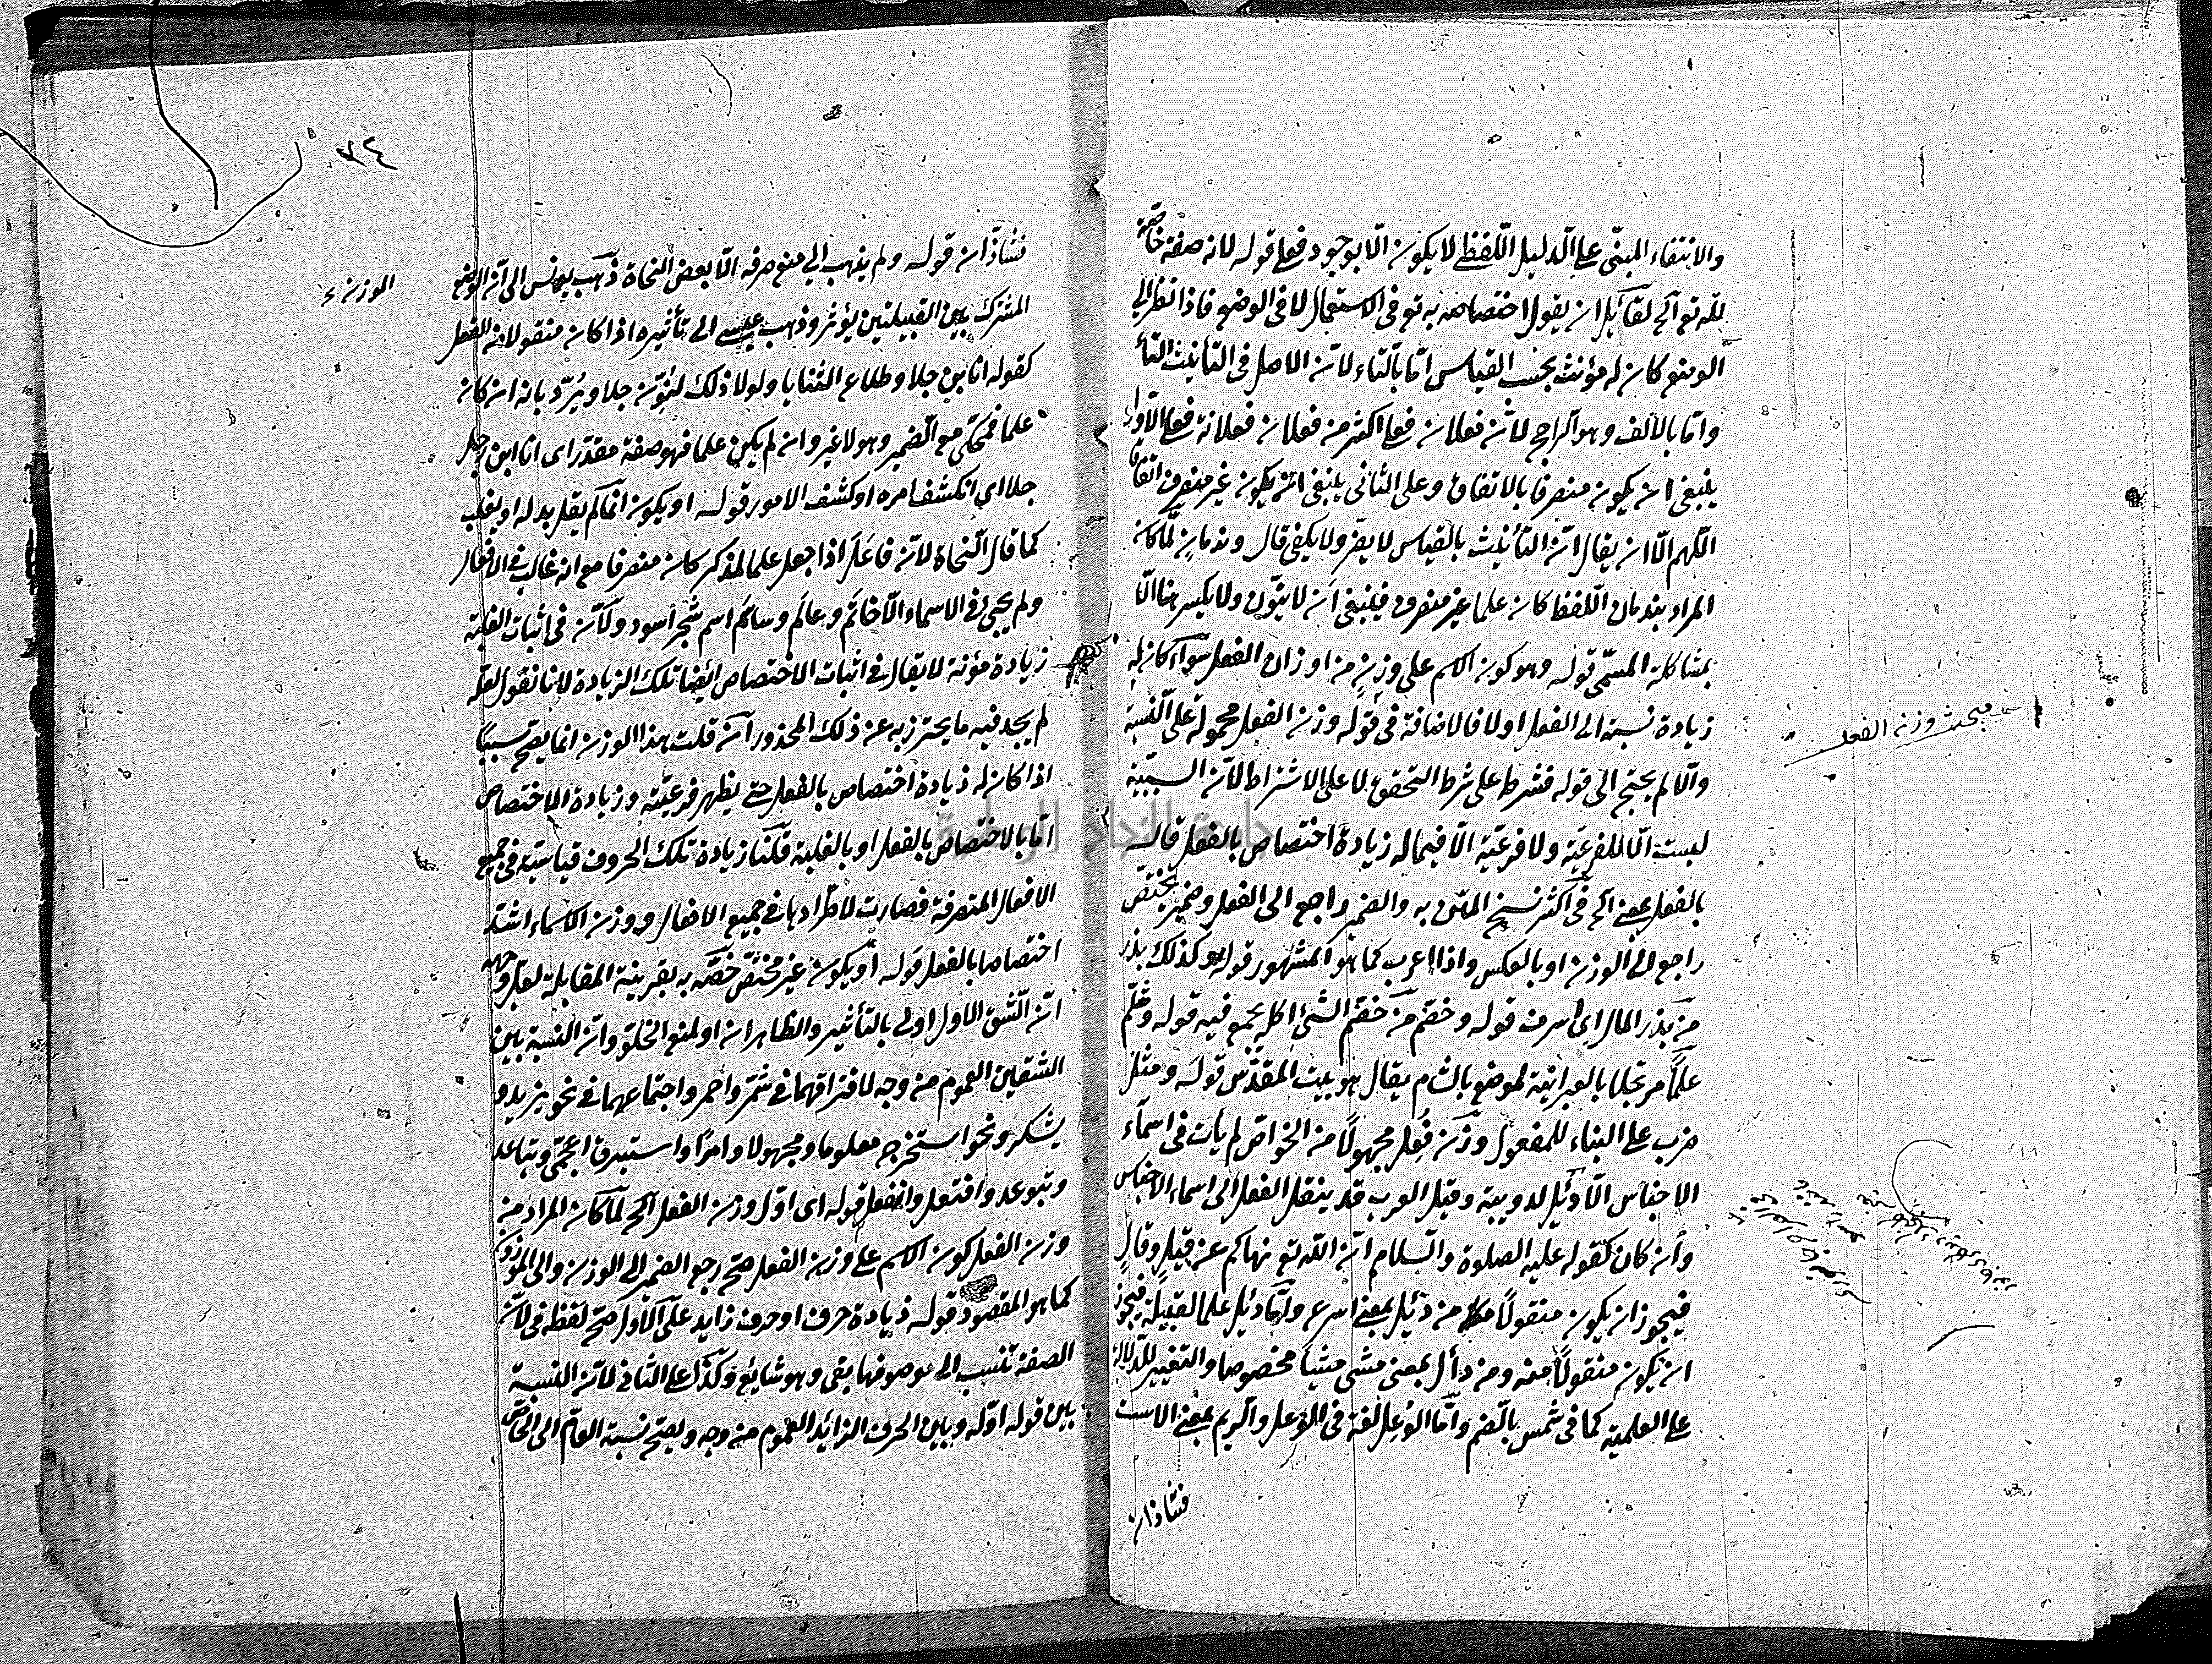 والانتفاء المبنّي على الدليل اللفظي لا يكون الّا بوجود فعلى قوله لانه صفة خاصة
لله تع آلخ لقائل ان يقول اختصاصه به تع في الاستعمال لا في الوضع فاذا نظر الى
الوضع كان له مؤنث بحسب القياس امّا بالتاء لانّ الاصل في التأنيث التاء
وامّا بالالف وهو الراجح لانّ فعلان فعلى اكثر من فعلان فعلانة فعلى الاول
ينبغي ان يكون منصرفا بالاتفاق وعلى الثاني ينبغي ان يكون غير منصرف اتفاقا
اللهم الّا ان يقال انّ التأنيث بالقياس لا يضر ولا يكفي قال وندمان لمّا كان
المراد بندمان اللفظ كان علما غير منصرف فينبغي ان لا ينوّن ولا يكسر هنا الّا
بمشاكلة المسمّى قوله وهو كون الاسم على وزن من اوزان الفعل سواء كان له
زيادة نسبة الى الفعل اولا فالاضافة في قوله وزن الفعل محمولة على النسبة
والّا لم يحتج الى قوله فشرط على شرط التحقق لا على الاشتراط لانّ السببيّة
ليست الّا للفرعيّة ولا فرعيّة الّا فيما له زيادة اختصاص بالفعل قاله
بالفعل بمعنى آلخ في اكثر نسخ المتن به والضمير راجع الى الفعل وضمير يختصّ
راجع الى الوزن او بالعكس واذا اعرب كما هو المشهور قوله وكذلك بذر
من بذر المال اى اسرف قوله وخضّم من خضم الشئ اكله بجمع فيه قوله وشلّم
علمًا مرتجلا بالعبرانيّة لموضع بالشام يقال هو بيت المقدّس قوله ومثل
ضرب على البناء للمفعول وزن فُعِل مجهولًا من الخواصّ لم يأت في اسماء
الاجناس الّا دُئِل لدويبة وقيل العرب قد ينقل الفعل الى اسماء الاجناس
وان كان كقوله عليه الصلوة والسلام انّ الله تع نهاكم عن قيل وقال
فيجوز ان يكون منقولًا من دئل بمعنى اسرع وامّا دئل علما لقبيلة فيجوز
ان يكون منقولًا منه ومن دأل بمعنى مشى مشيًا مخصوصا والتغيير للدلالة
على العلمية كما في شمس بالضم وامّا الوُعِل لغة في الوَعِل والرئم بمعنى الاست
فشاذان
مبحث وزن الفعل
٧٤
فشاذّان قوله ولم يذهب الى منع صرفه الّا بعض النحاة ذهب يونس الى انّ الوضع
الوزن
المشترك بين القبيلتين يؤثر وذهب عيسى الى تأثيره اذا كان منقولا من الفعل
كقوله انا ابن جلا وطلاع الثنايا ولولا ذلك لنوّن جلا ويُردّ بانه ان كان
علما فمحكيّ مع الضمير وهو لا غير وان لم يكن علما فهو صفة مقدّر اى انا ابن رجل
جلا اى انكشف امره او كشف الامور قوله او يكون انما لم يقل بدله او يغلب
كما قال النحاة لانّ فاعَلَ اذا جعل علما لمذكر كان منصرفا مع انه غالب في الافعال
ولم يجئ في الاسماء الّا خاتَم وعالَم وساسَم اسم شجر اسود ولانّ في اثبات الغلبة
زيادة مؤنة لا يقال في اثبات الاختصاص ايضا تلك الزيادة لانا نقول لعله
لم يجد فيه ما يحترز به عن ذلك المحذور آن قلت هذا الوزن انما يصح سببيًا
اذا كان له زيادة اختصاص بالفعل حتى يظهر فرعيّته وزيادة الاختصاص
امّا بالاختصاص بالفعل او بالغلبة قلنا زيادة تلك الحروف قياسيّة في جميع
الافعال المتصرفة فصارت لاطّرادها في جميع الافعال ووزن الاسماء اشدّ
اختصاصا بالفعل قوله او يكون غير مختصّ خصّه به بقرينة المقابلة لعلّ وجهه
انّ الشق الاول اولى بالتأثير والظاهر ان او لمنع الخلوّ وانّ النسبة بين
الشقين العموم من وجه لافتراقهما في شمّر واحمر واجتماعهما في نحو يزيد و
يشكر ونحو استخرج معلوما ومجهولا وامرًا واستبرق اعجميّ وتباعد
وتبوعد وافتعل وانفعل قوله اى اوّل وزن الفعل آلخ لمّا كان المراد من
وزن الفعل كون الاسم على وزن الفعل صحّ رجع الضمير الى الوزن والى الموزون
كما هو المقصود قوله زيادة حرف او حرف زايد على الاول صحّ لفظه في لانّ
الصفة تنسب الى موصوفها بفى وهو شايع وكذا على الثاني لانّ النسبة
بين قوله اوّله وبين الحرف الزائد العموم من وجه ويصحّ نسبة العامّ الى الخاصّ